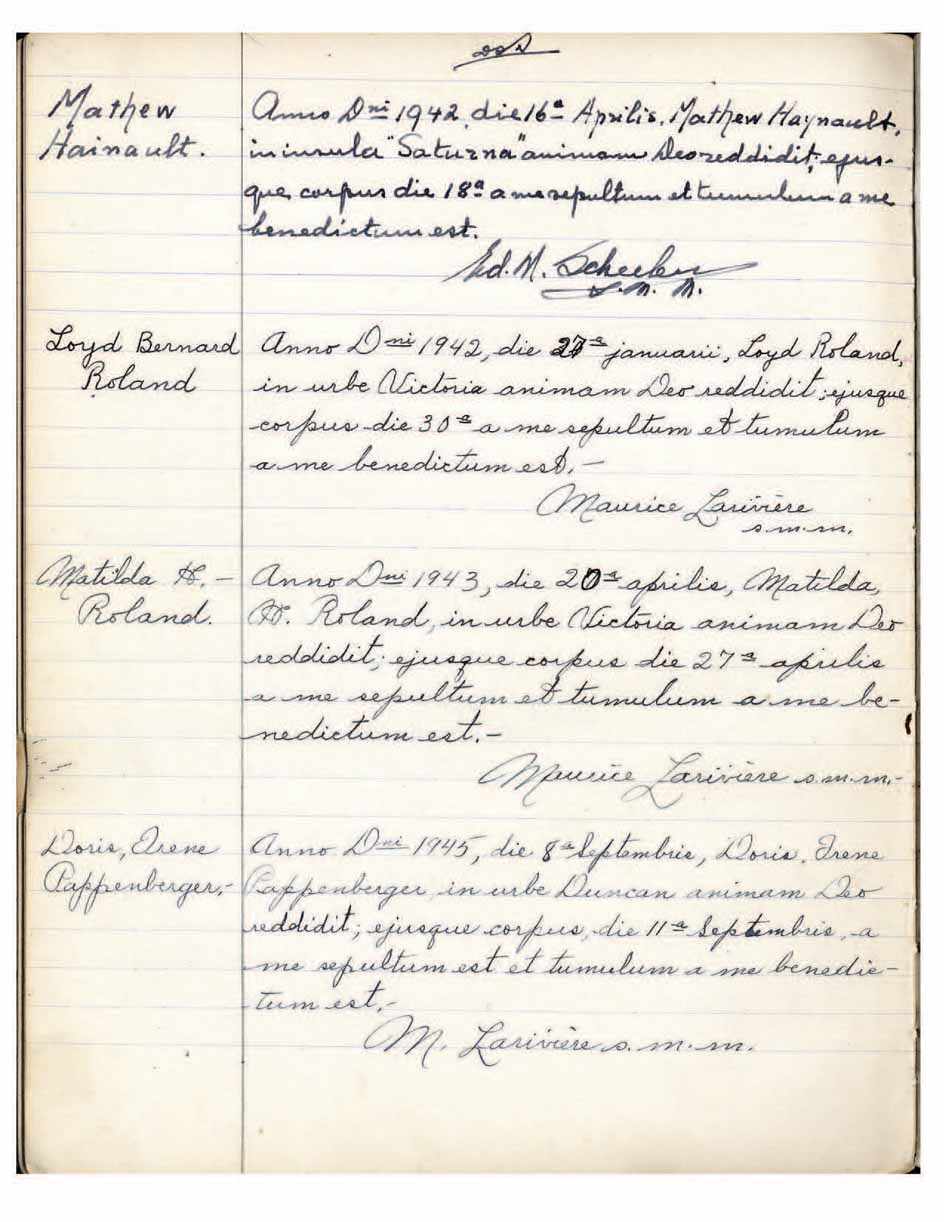 Mathew
Hainault.
Anno Dni 1942, die 16a Aprilis, Mathew Haynault,
in insula "Saturna" animam Deo reddidit; ejus-
que corpus die 18a a me sepultum et tumulum a me
benedictum est.
Ed. M. Scheelen
s.m.m.
Loyd Bernard
Roland
Anno Dni 1942, die 27a januarii, Loyd Roland,
in urbe Victoria animam Deo reddidit; ejusque
corpus die 30a a me sepultum et tumulum
a me benedictum est.-
Maurice Larivière
s.m.m.
Matilda H. -
Roland.
Anno Dni 1943, die 20a aprilis, Matilda,
H. Roland, in urbe Victoria animam Deo
reddidit; ejusque corpus die 27a aprilis
a me sepultum et tumulum a me be-
nedictum est.-
Maurice Larivière s.m.m.-
Doris, Irene
Pappenberger.-
Anno Dni 1945, die 8a Septembris, Doris, Irene
Pappenberger, in urbe Duncan animam Deo
reddidit; ejusque corpus, die 11a Septembris, a
me sepultum est et tumulum a me benedic-
tum est.-
M. Larivière s.m.m.